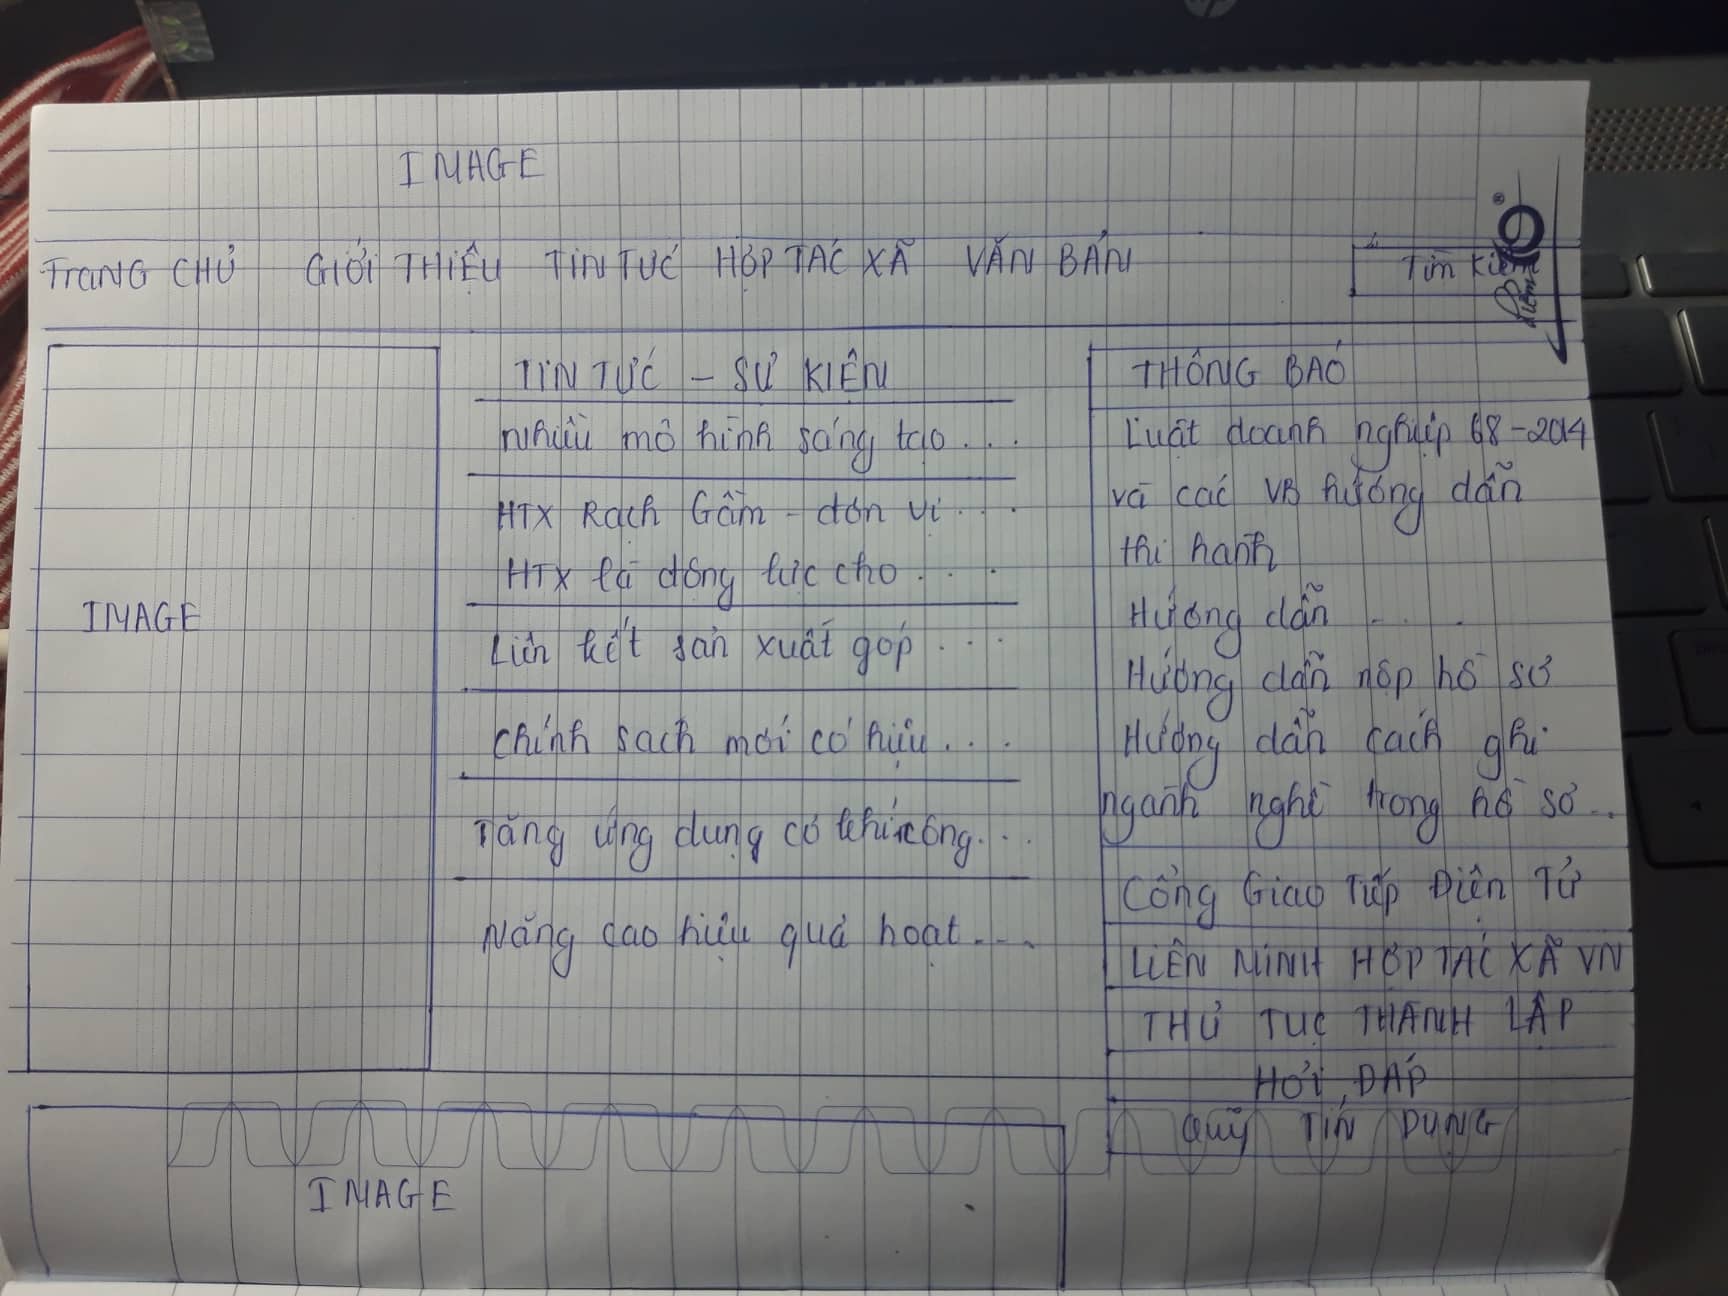 IMAGE
TRANG CHỦ GIỚI THIỆU TIN TỨC HỢP TÁC XÃ VĂN BẢN Tìm kiếm
TIN TỨC - SỰ KIỆN
nhiều mô hình sáng tạo...
HTX Rạch Gầm - đơn vị....
HTX là động lực cho....
Liên kết sản xuất góp...
chính sách mới có hiệu....
Tăng ứng dụng cơ khí công...
Nâng cao hiệu quả hoạt....
IMAGE
THÔNG BÁO
Luật doanh nghiệp 68-2014
và các VB hướng dẫn
thi hành
Hướng dẫn ...
Hướng dẫn nộp hồ sơ
Hướng dẫn cách ghi
ngành nghề trong hồ sơ...
Cổng Giao Tiếp Điện Tử
LIÊN MINH HỢP TÁC XÃ VN
THỦ TỤC THÀNH LẬP
HỎI, ĐÁP
QUỸ TÍN DỤNG
IMAGE